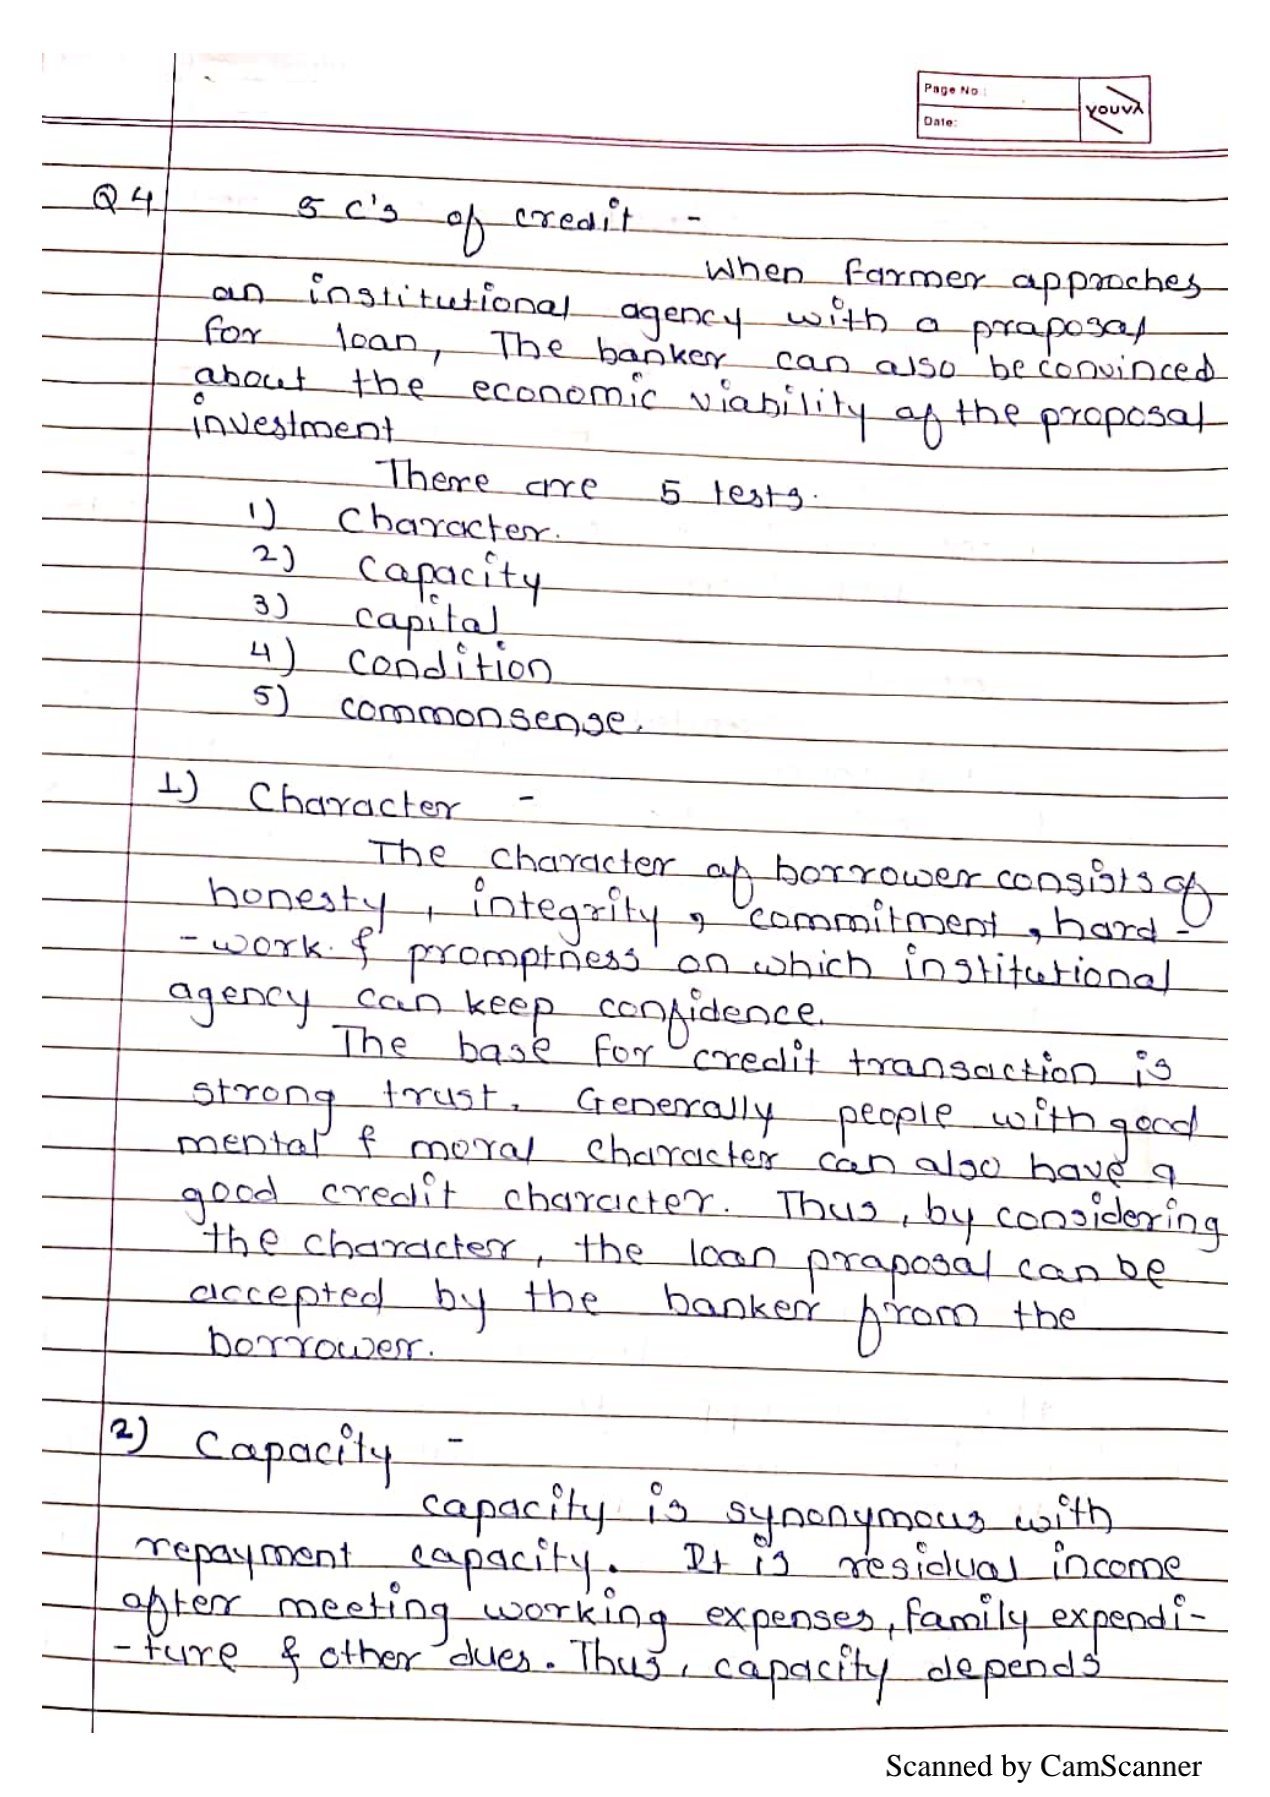 Page No.:
Date:
YOUVA
Q4 5 C's of credit -
When farmer approches
an institutional agency with a praposal
for loan, The banker can also be convinced
about the economic viability of the proposal
investment
There are 5 tests.
1) Character.
2) Capacity
3) capital
4) condition
5) commonsense.
1) Character -
The character of borrower consists of
honesty, integrity, commitment, hard-
-work & promptness on which institutional
agency can keep confidence.
The base for credit transaction is
strong trust. Generally people with good
mental & moral character can also have a
good credit character. Thus, by considering
the character, the loan praposal can be
accepted by the banker from the
borrower.
2) Capacity -
capacity is synonymous with
repayment capacity. It is residual income
after meeting working expenses, family expendi-
-ture & other dues. Thus, capacity depends
Scanned by CamScanner